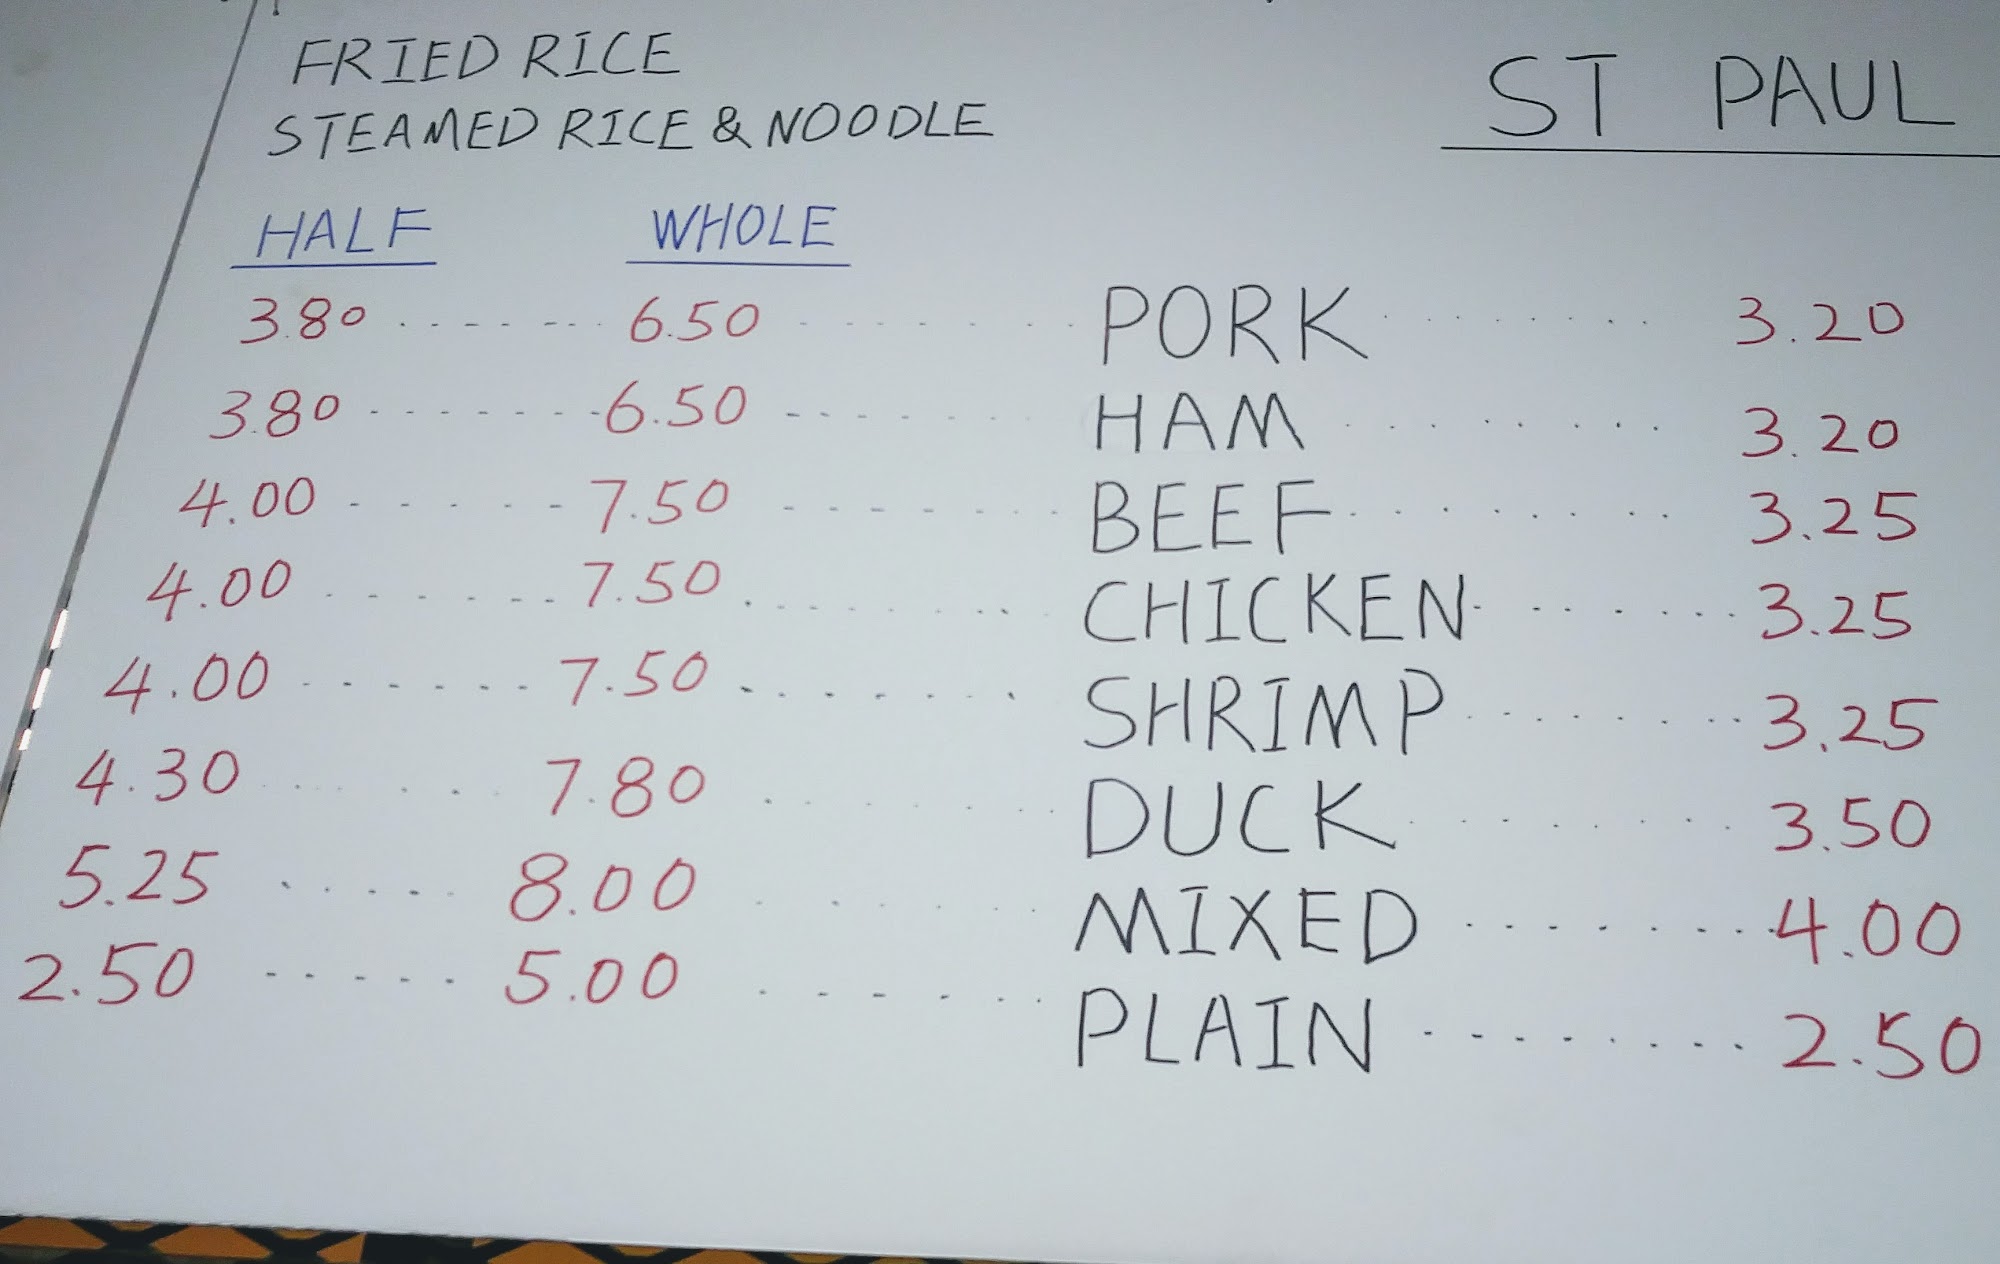 FRIED RICE
STEAMED RICE & NOODLE
ST PAUL
HALF WHOLE
3.80 ...... 6.50 ...... PORK ....... 3.20
3.80 ...... 6.50 ...... HAM ....... 3.20
4.00 ...... 7.50 ...... BEEF ....... 3.25
4.00 ...... 7.50 ...... CHICKEN ....... 3.25
4.00 ...... 7.50 ...... SHRIMP ....... 3.25
4.30 ...... 7.80 ...... DUCK ....... 3.50
5.25 ...... 8.00 ...... MIXED ....... 4.00
2.50 ...... 5.00 ...... PLAIN ....... 2.50